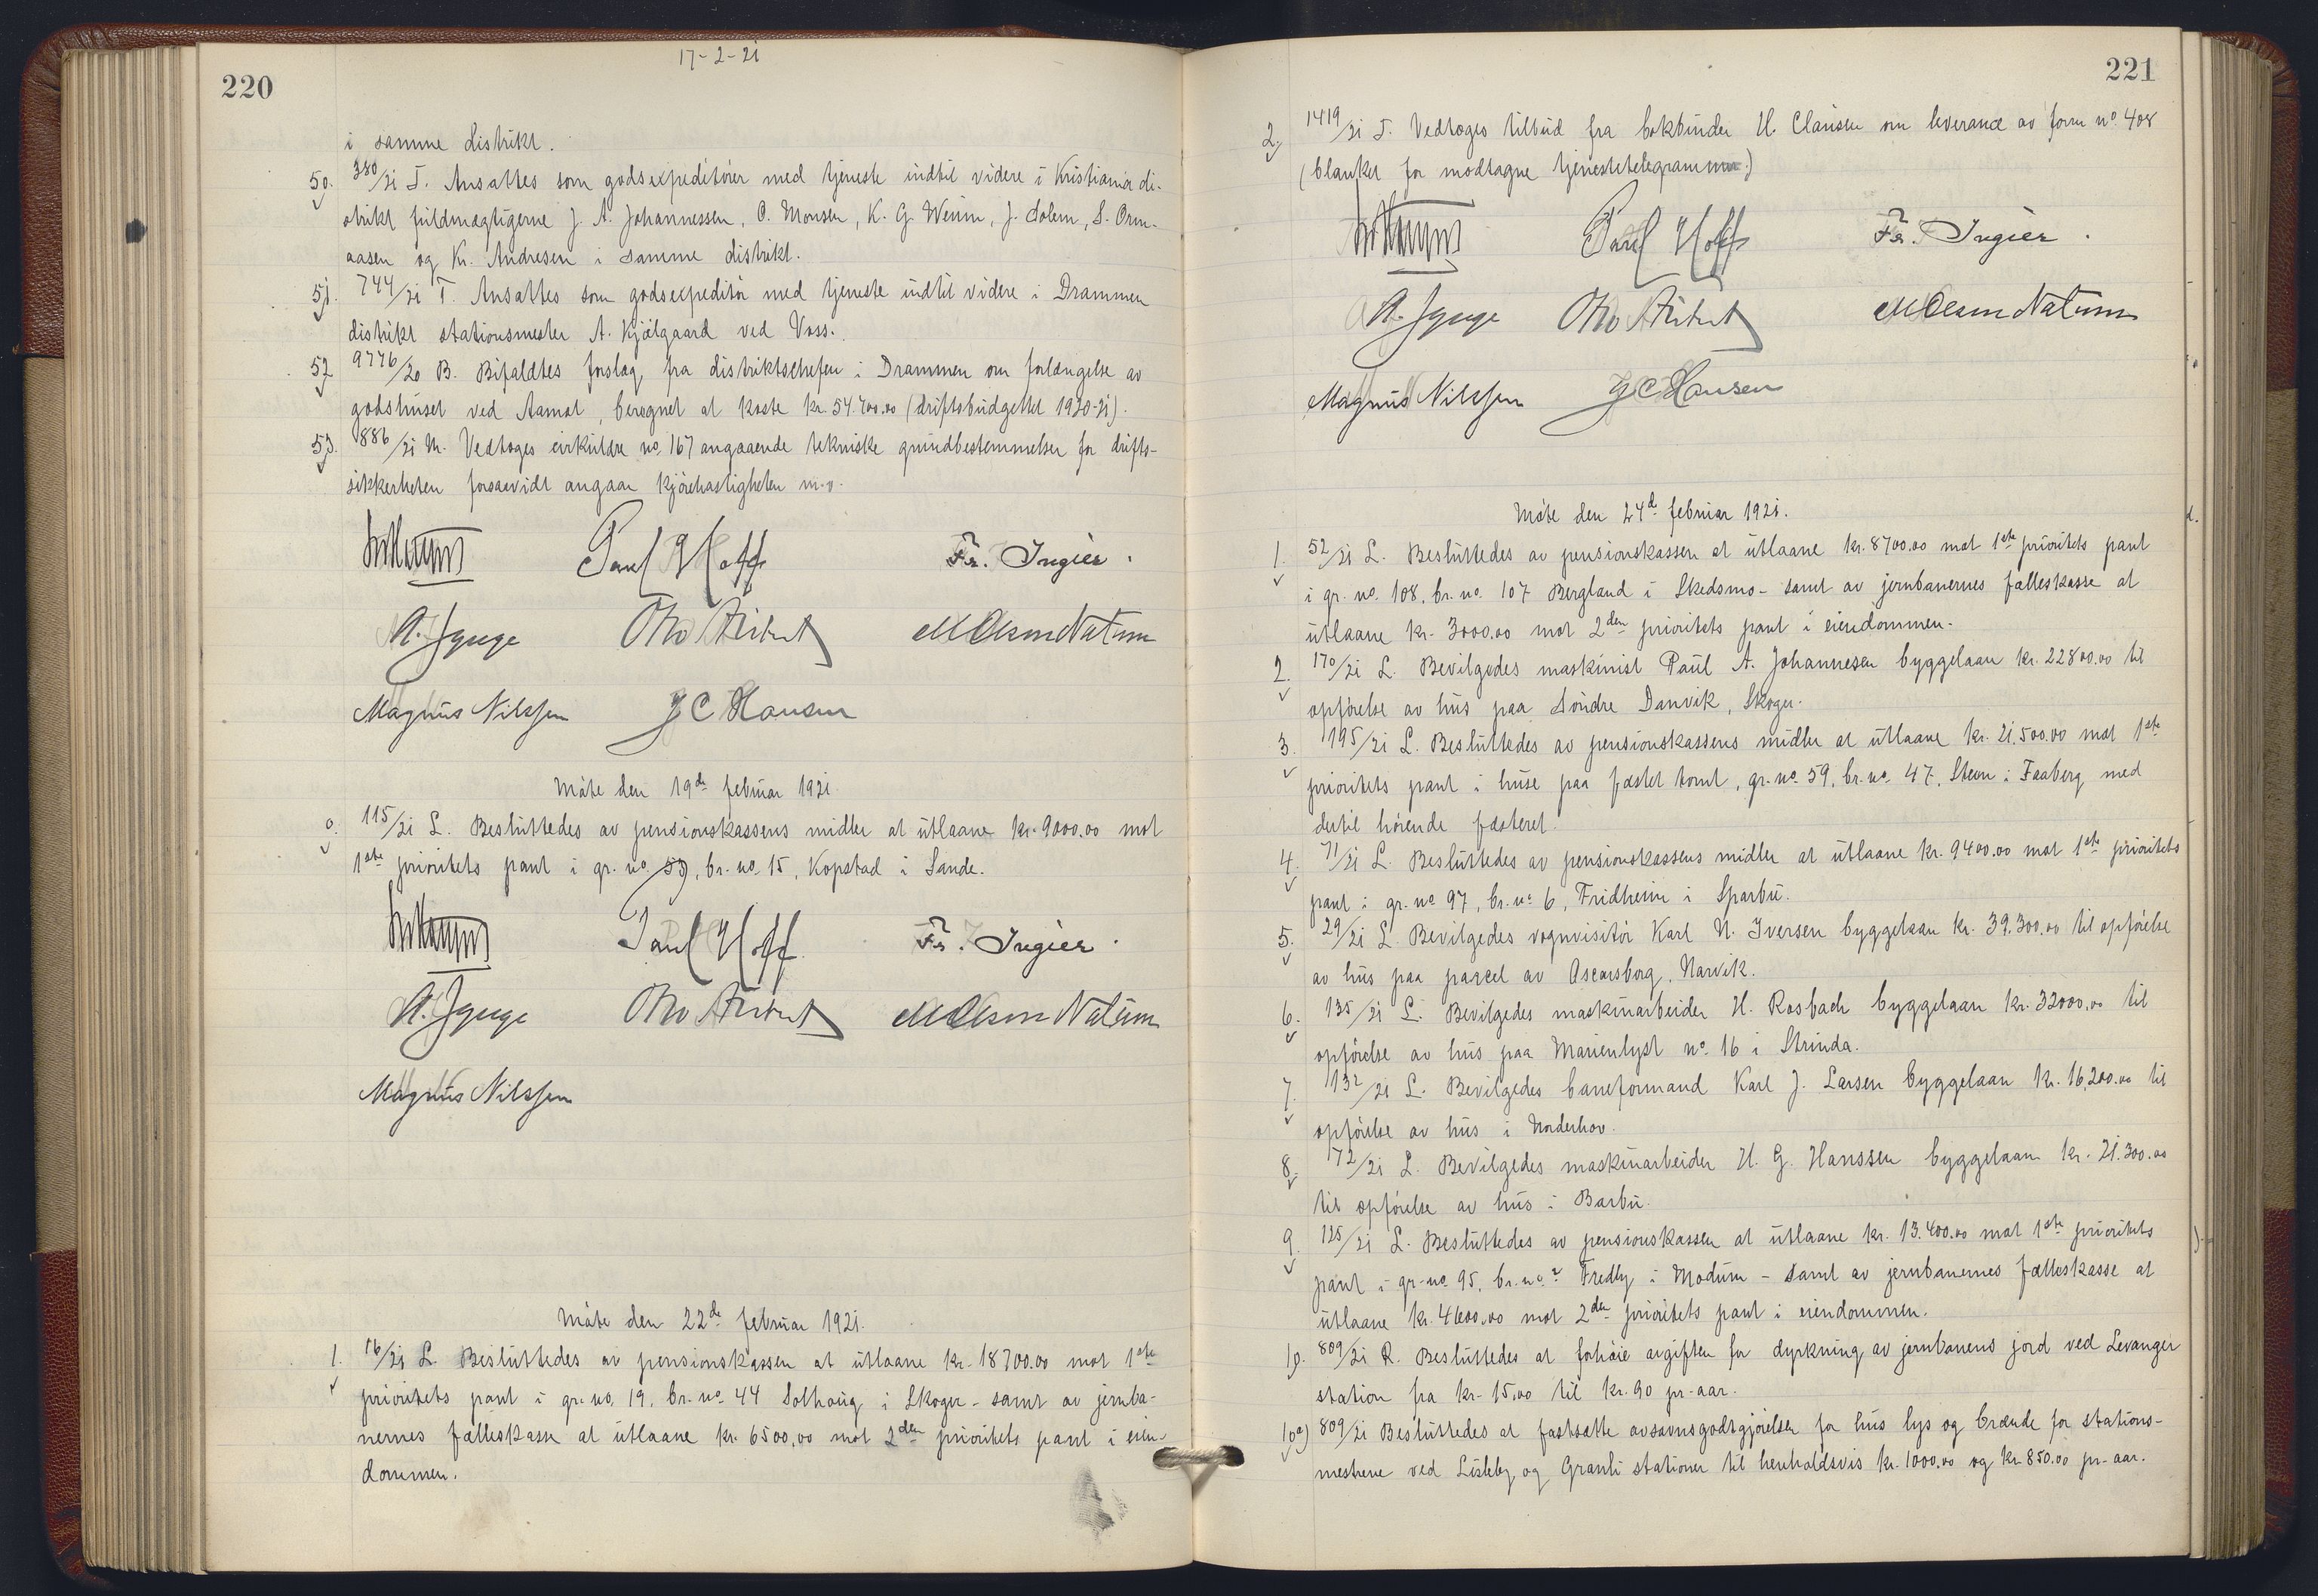 17-2-21
220
i samme distrikt.
50. 380/21 T. Ansattes som godsexpeditører med tjeneste indtil videre i Kristiania di-
strikt fuldmægtigerne J. A. Johannessen, O. Monsen, K. G. Weum, J. Solem, S. Orm-
aasen og Kr. Andresen i samme distrikt.
51. 744/21 T. Ansattes som godsexpeditör med tjeneste indtil videre i Drammen
distrikt stationsmester A. Kjölgaard ved Voss.
52 9776/20 B. Bifaldtes forslag fra distriktschefen i Drammen om forlængelse av
godshuset ved Aamot, beregnet at koste kr. 54.700.00 (driftsbudgettet 1920-21).
53. 886/21 M. Vedtoges cirkulære no. 167 angaaende tekniske grundbestemmelser for drifts-
sikkerheten forsaavidt angaar kjörehastigheten m.v.
Paul Hoff Fr. Ingier.
Magnus Nilssen J C Hansen
Möte den 19de februar 1921.
0. 115/21 L. Besluttedes av pensionskassens midler at utlaane kr. 9000.00 mot
1ste prioritets pant i gr. no. 59, br. no. 15, Kopstad i Sande.
Paul Hoff Fr. Ingier.
Magnus Nilssen
Möte den 22de februar 1921.
1. 16/21 L. Besluttedes av pensionskassen at utlaane kr. 18700.00 mot 1ste
prioritets pant i gr. no. 19, br. no. 44 Solhaug i Skoger - samt av jernba-
nernes fælleskasse at utlaane kr. 6500,00 mot 2den prioritets pant i eien-
dommen.
221
2. 1419/21 T. Vedtoges tilbud fra bokbinder H. Clausen om leverance av form no. 408
(blanket for modtagne tjenestetelegrammer.)
Paul Hoff Fr. Ingier.
Magnus Nilssen J C Hansen
Möte den 24de februar 1921.
1. 52/21 L. Besluttedes av pensionskassen at utlaane kr. 8700.00 mot 1ste prioritets pant
i gr. no. 108, br. no. 107 Bergland i Skedsmo - samt av jernbanernes fælleskasse at
utlaane kr. 3000.00 mot 2den prioritets pant i eiendommen.
2. 170/21 L. Bevilgedes maskinist Paul A. Johannesen byggelaan kr. 22800.00 til
opförelse av hus paa Söndre Danvik, Skoger.
3. 195/21 L. Besluttedes av pensionskassens midler at utlaane kr. 21.500.00 mot 1ste
prioritets pant i huse paa fæstet tomt, gr. no. 59, br. no. 47, Steen i Faaberg med
dertil hörende fæsteret.
4. 71/21 L. Besluttedes av pensionskassens midler at utlaane kr. 9400.00 mot 1ste prioritets
pant i gr. no 97, br. no 6, Fridheim i Sparbu.
5. 29/21 L. Bevilgedes vognvisitör Karl N. Iversen byggelaan kr. 39.300.00 til opförelse
av hus paa parcel av Oscarsborg, Narvik.
6. 135/21 L. Bevilgedes maskinarbeider H. Rosbach byggelaan kr. 32000,00 til
opförelse av hus paa Marienlyst no. 16 i Strinda.
7. 132/21 L. Bevilgedes baneformand Karl J. Larsen byggelaan kr. 16,200.00 til
opförelse av hus i Norderhov.
8. 172/21 L. Bevilgedes maskinarbeider H. G. Hanssen byggelaan kr. 21.300.00
til opförelse av hus i Barbu.
9. 125/21 L. Besluttedes av pensionskassen at utlaane kr. 13.400.00 mot 1ste prioritets
pant i gr. no 95, br. no. 2 Fredly i Modum - samt av jernbanernes fælleskasse at
utlaane kr. 4600,00 mot 2den prioritets pant i eiendommen.
10. 809/21 R. Besluttedes at forhöie avgiften for dyrkning av jernbanens jord ved Levanger
station fra kr. 15,00 til kr. 90 pr. aar.
10a) 809/21 Besluttedes at fastsætte avsavnsgodtgjörelsen for hus lys og brænde for stations-
mestrene ved Lisleby og Granli stationer til henholdsvis kr. 1000.00 og kr 850.00 pr. aar.